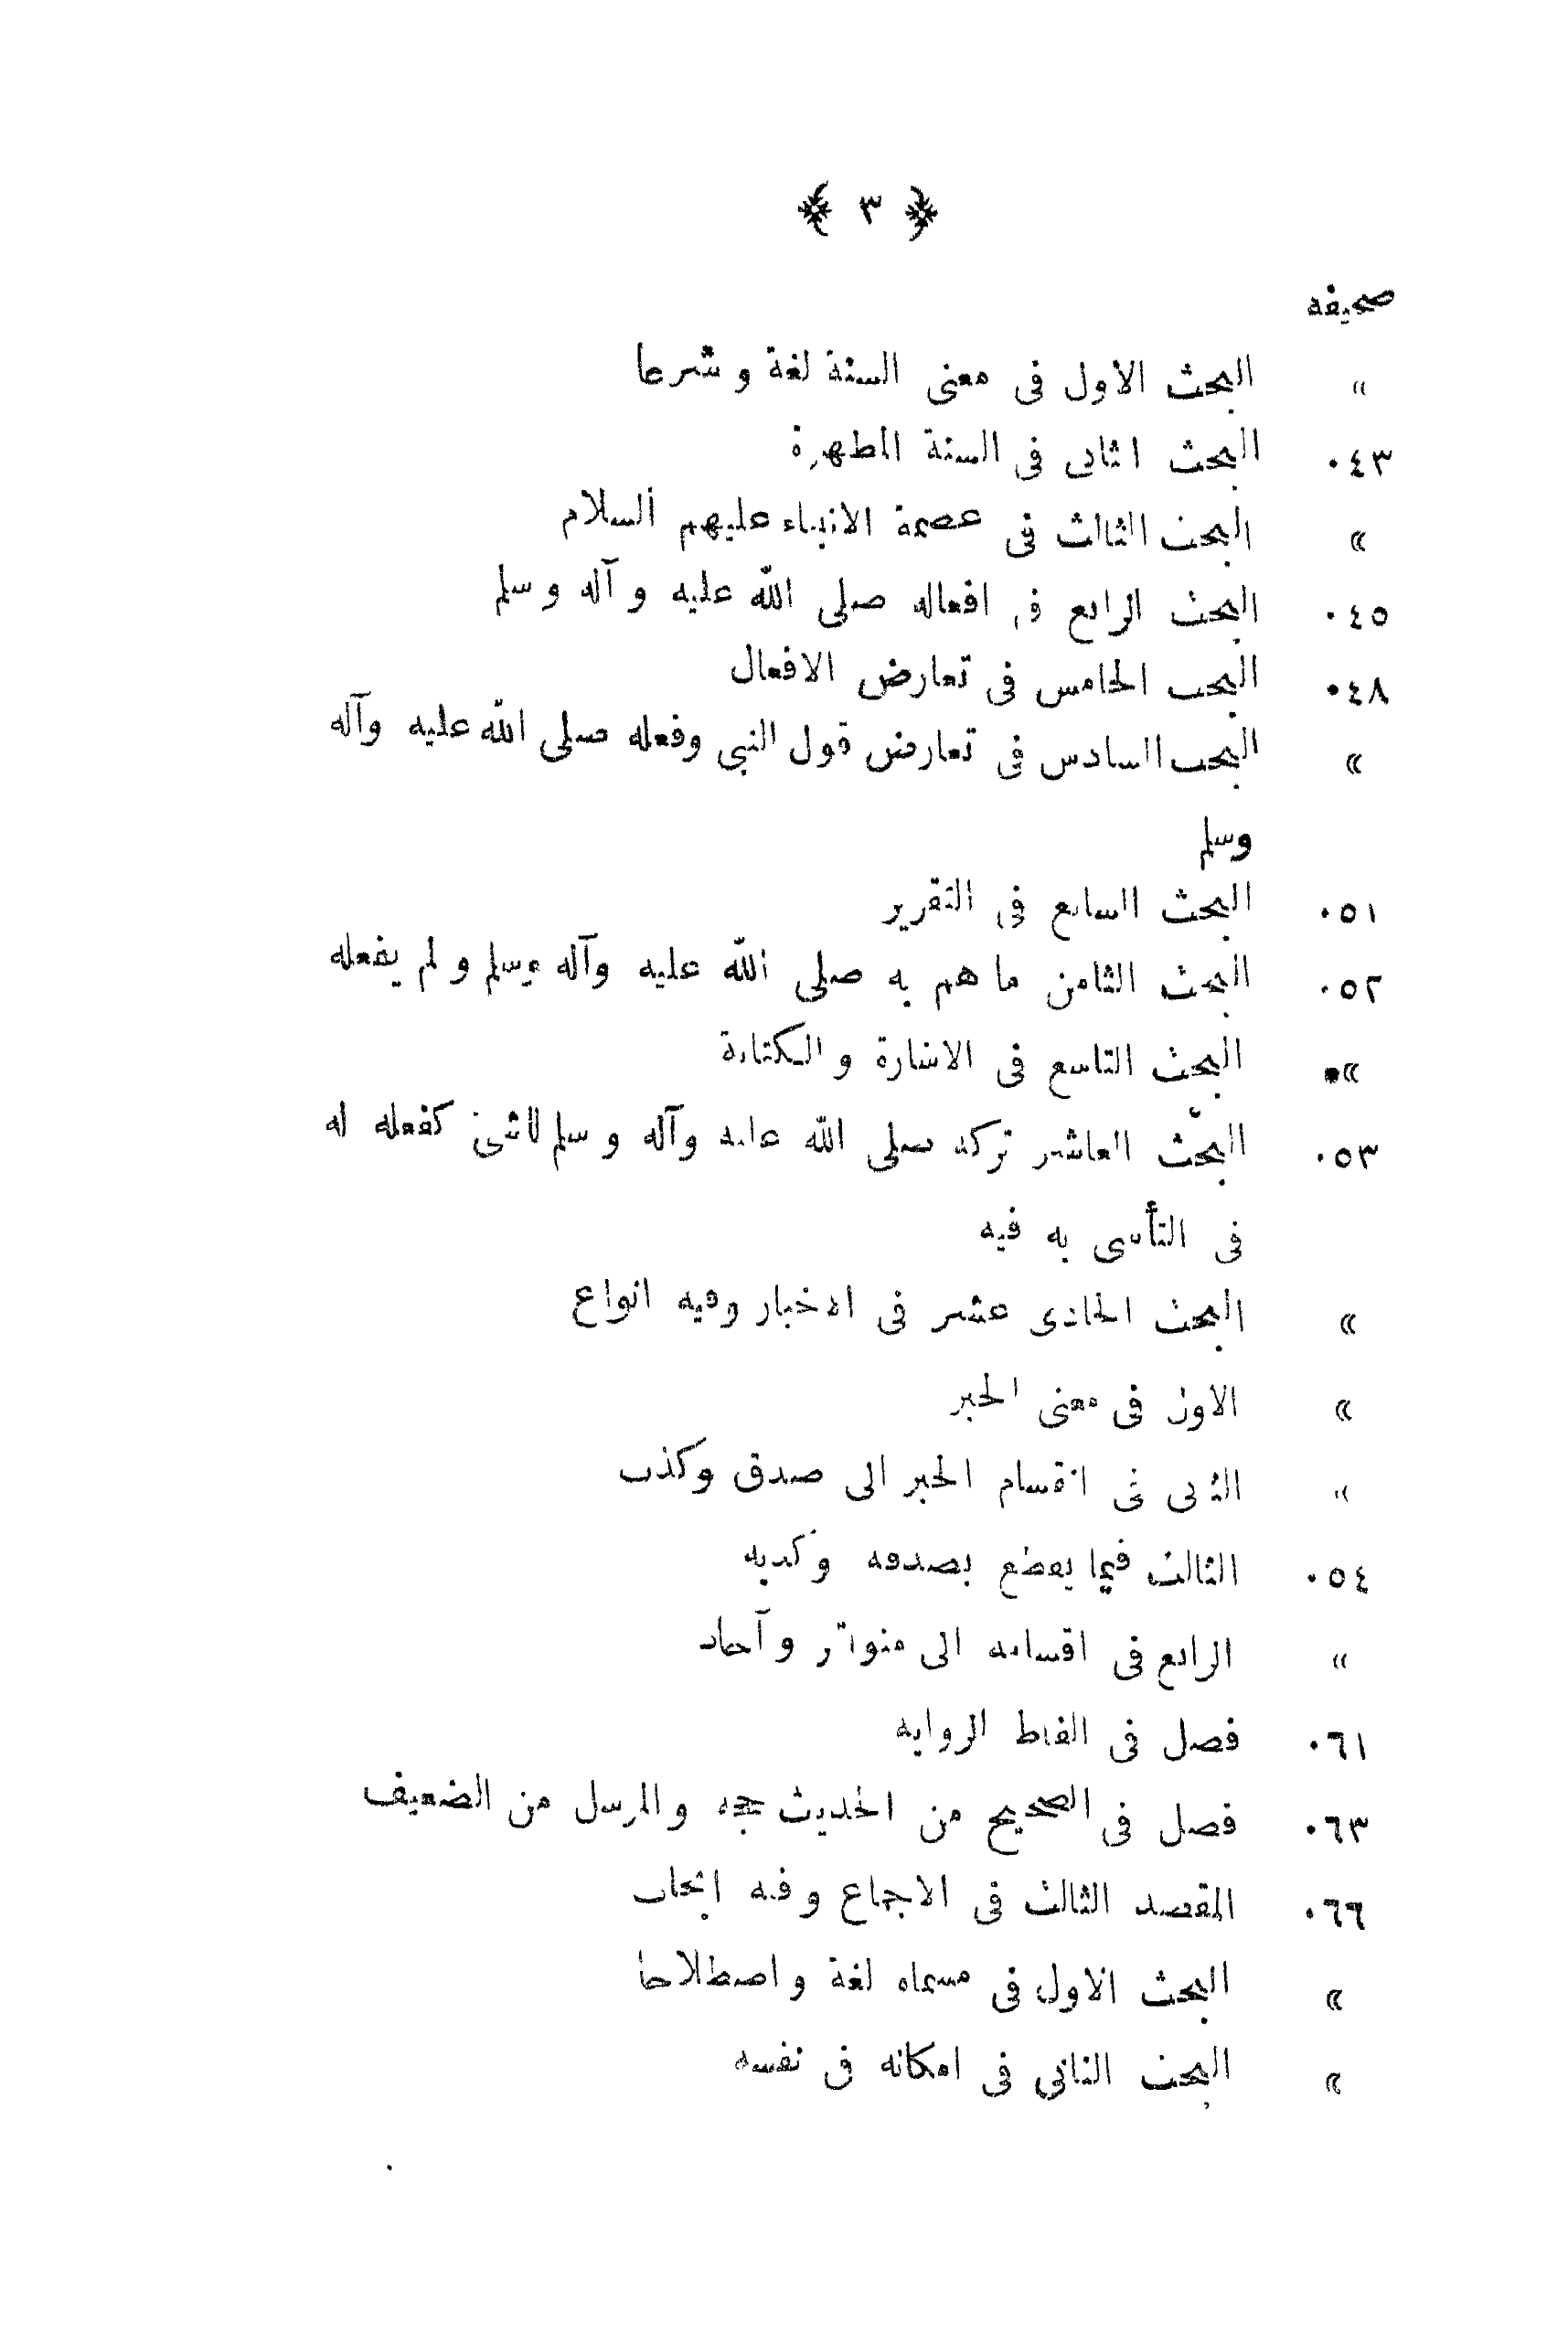 ﴿ ٣ ﴾
صحيفه
» البحث الاول فى معنى السنة لغة و شرعا
٠٤٣ البحث الثانى فى السنة المطهرة
» البحث الثالث فى عصمة الانبياء عليهم السلام
٠٤٥ البحث الرابع فى افعاله صلى الله عليه و آله و سلم
٠٤٨ البحث الخامس فى تعارض الافعال
» البحث السادس فى تعارض قول النبى وفعله صلى الله عليه وآله
وسلم
٠٥١ البحث السابع فى التقرير
٠٥٢ البحث الثامن ما هم به صلى الله عليه وآله وسلم و لم يفعله
» البحث التاسع فى الاشارة و الكتابة
٠٥٣ البحث العاشر تركه صلى الله عليه وآله و سلم للشئ كفعله له
فى التأسى به فيه
» البحث الحادى عشر فى الاخبار وفيه انواع
» الاول فى معنى الخبر
» الثانى فى انقسام الخبر الى صدق وكذب
٠٥٤ الثالث فيما يقطع بصدقه وكذبه
» الرابع فى اقسامه الى متواتر و آحاد
٠٦١ فصل فى الفاظ الروايه
٠٦٣ فصل فى الصحيح من الحديث حجه والمرسل من الضعيف
٠٦٦ المقصد الثالث فى الاجماع وفيه ابحاث
» البحث الاول فى مسماه لغة و اصطلاحا
» البحث الثانى فى امكانه فى نفسه